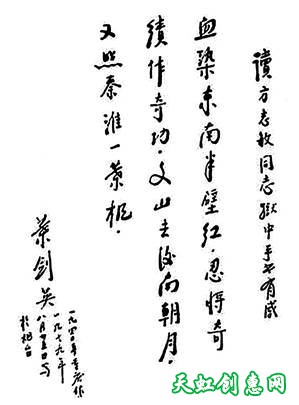 讀方志敏同志獄中手书有感
血染东南半壁红,忍将奇
績作奇功。文山去後南朝月,
又照秦淮一葉楓。
葉剑英
一九四〇年重慶作
一九七九年
八月 日写
於烟台
天虹创意网